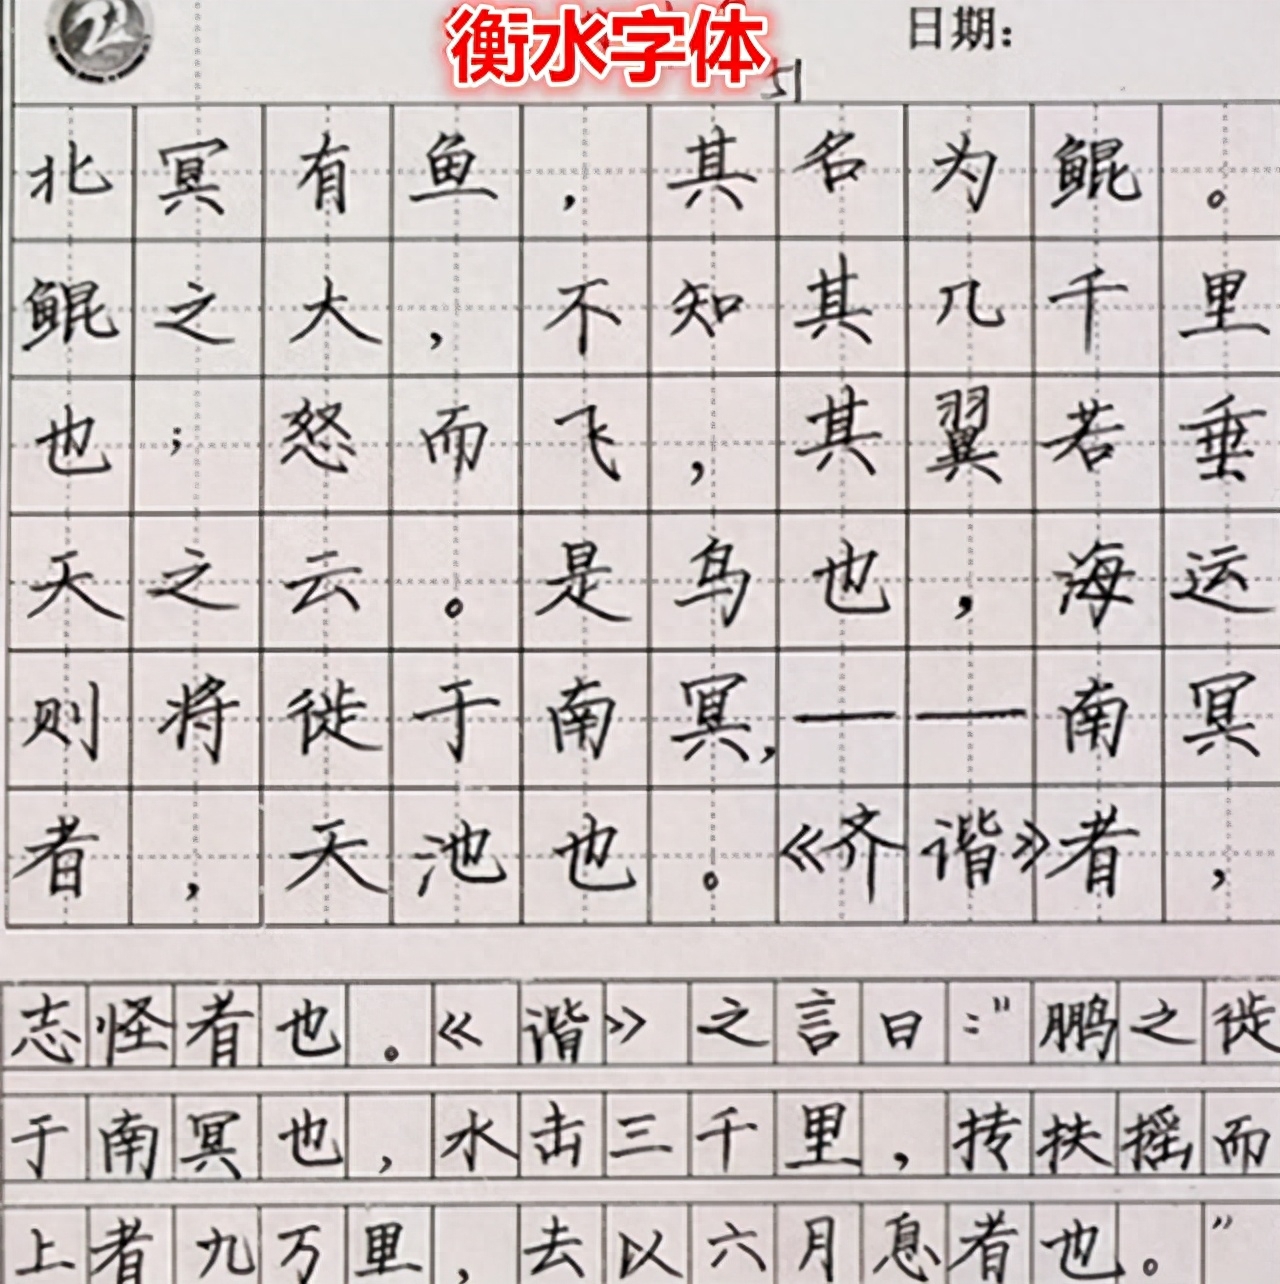 衡水字体
日期:
51
北冥有鱼，其名为鲲。
鲲之大，不知其几千里
也；怒而飞，其翼若垂
天之云。是鸟也，海运
则将徙于南冥，——南冥
者，天池也。《齐谐》者，
志怪者也。《谐》之言曰："鹏之徙
于南冥也，水击三千里，抟扶摇而
上者九万里，去以六月息者也。"